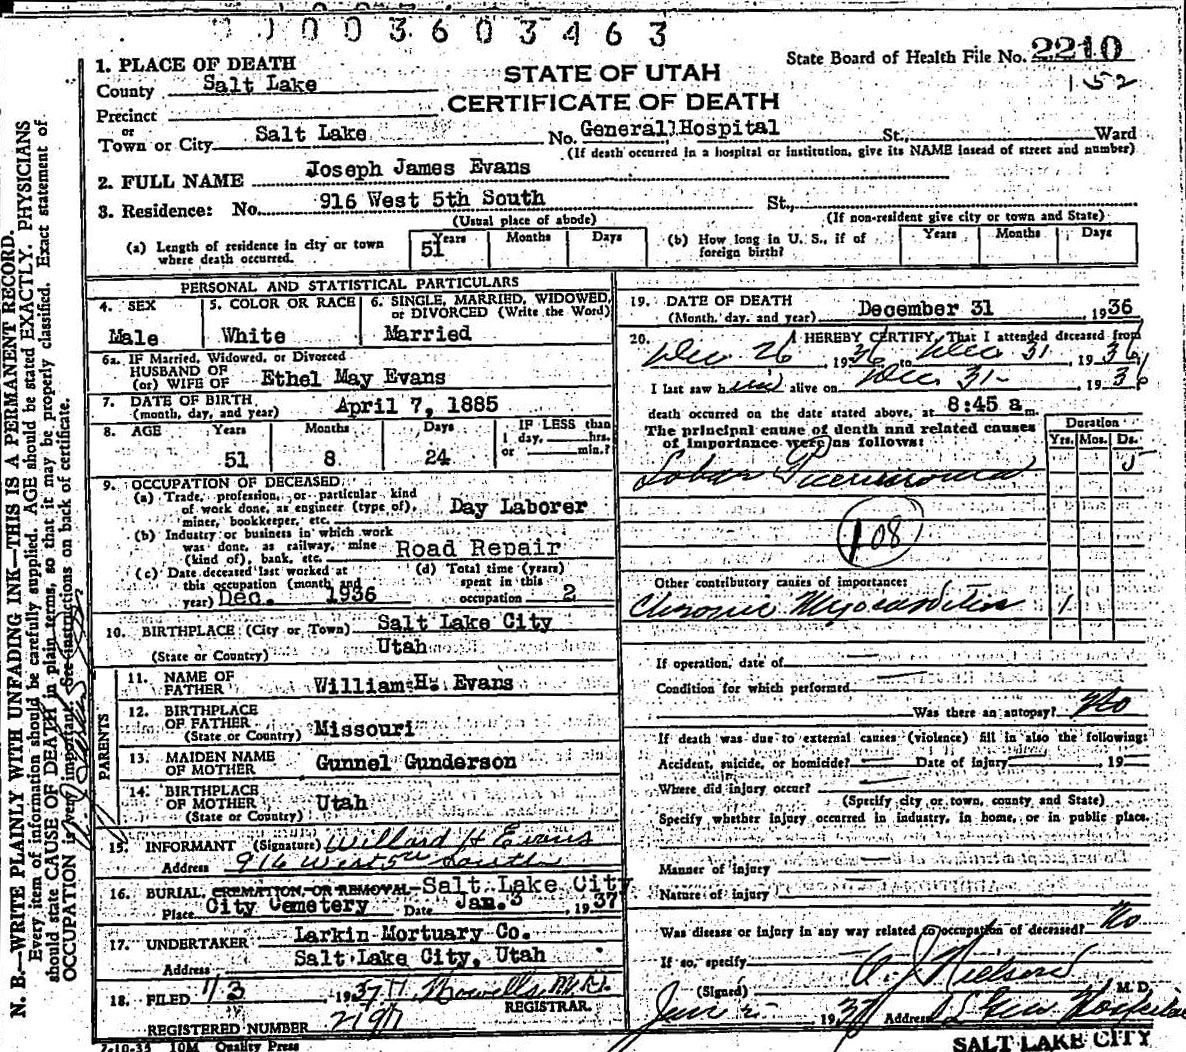 0003603463
State Board of Health File No. 2210
152
STATE OF UTAH
CERTIFICATE OF DEATH
1. PLACE OF DEATH
County Salt Lake
Precinct
or
Town or City Salt Lake No. General Hospital St., Ward
(If death occurred in a hospital or institution, give its NAME insead of street and number)
2. FULL NAME Joseph James Evans
3. Residence: No. 916 West 5th South St.,
(Usual place of abode) (If non-resident give city or town and State)
(a) Length of residence in city or town where death occurred. Years 51 Months Days
(b) How long in U. S., if of foreign birth? Years Months Days
PERSONAL AND STATISTICAL PARTICULARS
4. SEX Male
5. COLOR OR RACE White
6. SINGLE, MARRIED, WIDOWED, or DIVORCED (Write the Word) Married
6a. IF Married, Widowed, or Divorced
HUSBAND OF
(or) WIFE OF Ethel May Evans
7. DATE OF BIRTH
(month, day, and year) April 7, 1885
8. AGE Years 51 Months 8 Days 24 IF LESS than 1 day, hrs. or min.?
9. OCCUPATION OF DECEASED
(a) Trade, profession, or particular kind
of work done, as engineer (type of),
miner, bookkeeper, etc. Day Laborer
(b) Industry or business in which work
was done, as railway, mine
(kind of), bank, etc. Road Repair
(c) Date deceased last worked at
this occupation (month and
year) Dec. 1936
(d) Total time (years)
spent in this
occupation 2
10. BIRTHPLACE (City or Town) Salt Lake City
(State or Country) Utah
PARENTS
11. NAME OF
FATHER William H. Evans
12. BIRTHPLACE
OF FATHER
(State or Country) Missouri
13. MAIDEN NAME
OF MOTHER Gunnel Gunderson
14. BIRTHPLACE
OF MOTHER
(State or Country) Utah
15. INFORMANT (Signature) Willard H Evans
Address 916 West 5th South
16. BURIAL, CREMATION, OR REMOVAL Salt Lake City
Place City Cemetery Date Jan. 3, 1937
17. UNDERTAKER Larkin Mortuary Co.
Address Salt Lake City, Utah
18. FILED 1/3, 1937 Howells, M.D.
REGISTRAR.
REGISTERED NUMBER 2197
7-10-35 10M Quality Press
19. DATE OF DEATH
(Month, day, and year) December 31, 1936
20. I HEREBY CERTIFY, That I attended deceased from
Dec 26, 1936 to Dec 31, 1936
I last saw him alive on Dec 31-, 1936
death occurred on the date stated above, at 8:45 a m.
The principal cause of death and related causes
of importance were as follows:
Duration
Yrs. Mos. Ds.
Lobar Pneumonia 5
108
Other contributory causes of importance:
Chronic Myocarditis 1
If operation, date of
Condition for which performed
Was there an autopsy? No
If death was due to external causes (violence) fill in also the following:
Accident, suicide, or homicide? Date of injury, 19
Where did injury occur?
(Specify city or town, county and State)
Specify whether injury occurred in industry, in home, or in public place.
Manner of injury
Nature of injury
Was disease or injury in any way related to occupation of deceased? No
If so, specify
(Signed) A J Nielson M. D.
Jan 2 1937 Address S L Gen Hospital
SALT LAKE CITY
N. B.—WRITE PLAINLY WITH UNFADING INK—THIS IS A PERMANENT RECORD.
Every item of information should be carefully supplied. AGE should be stated EXACTLY. PHYSICIANS
should state CAUSE OF DEATH in plain terms, so that it may be properly classified. Exact statement of
OCCUPATION is very important. See instructions on back of certificate.